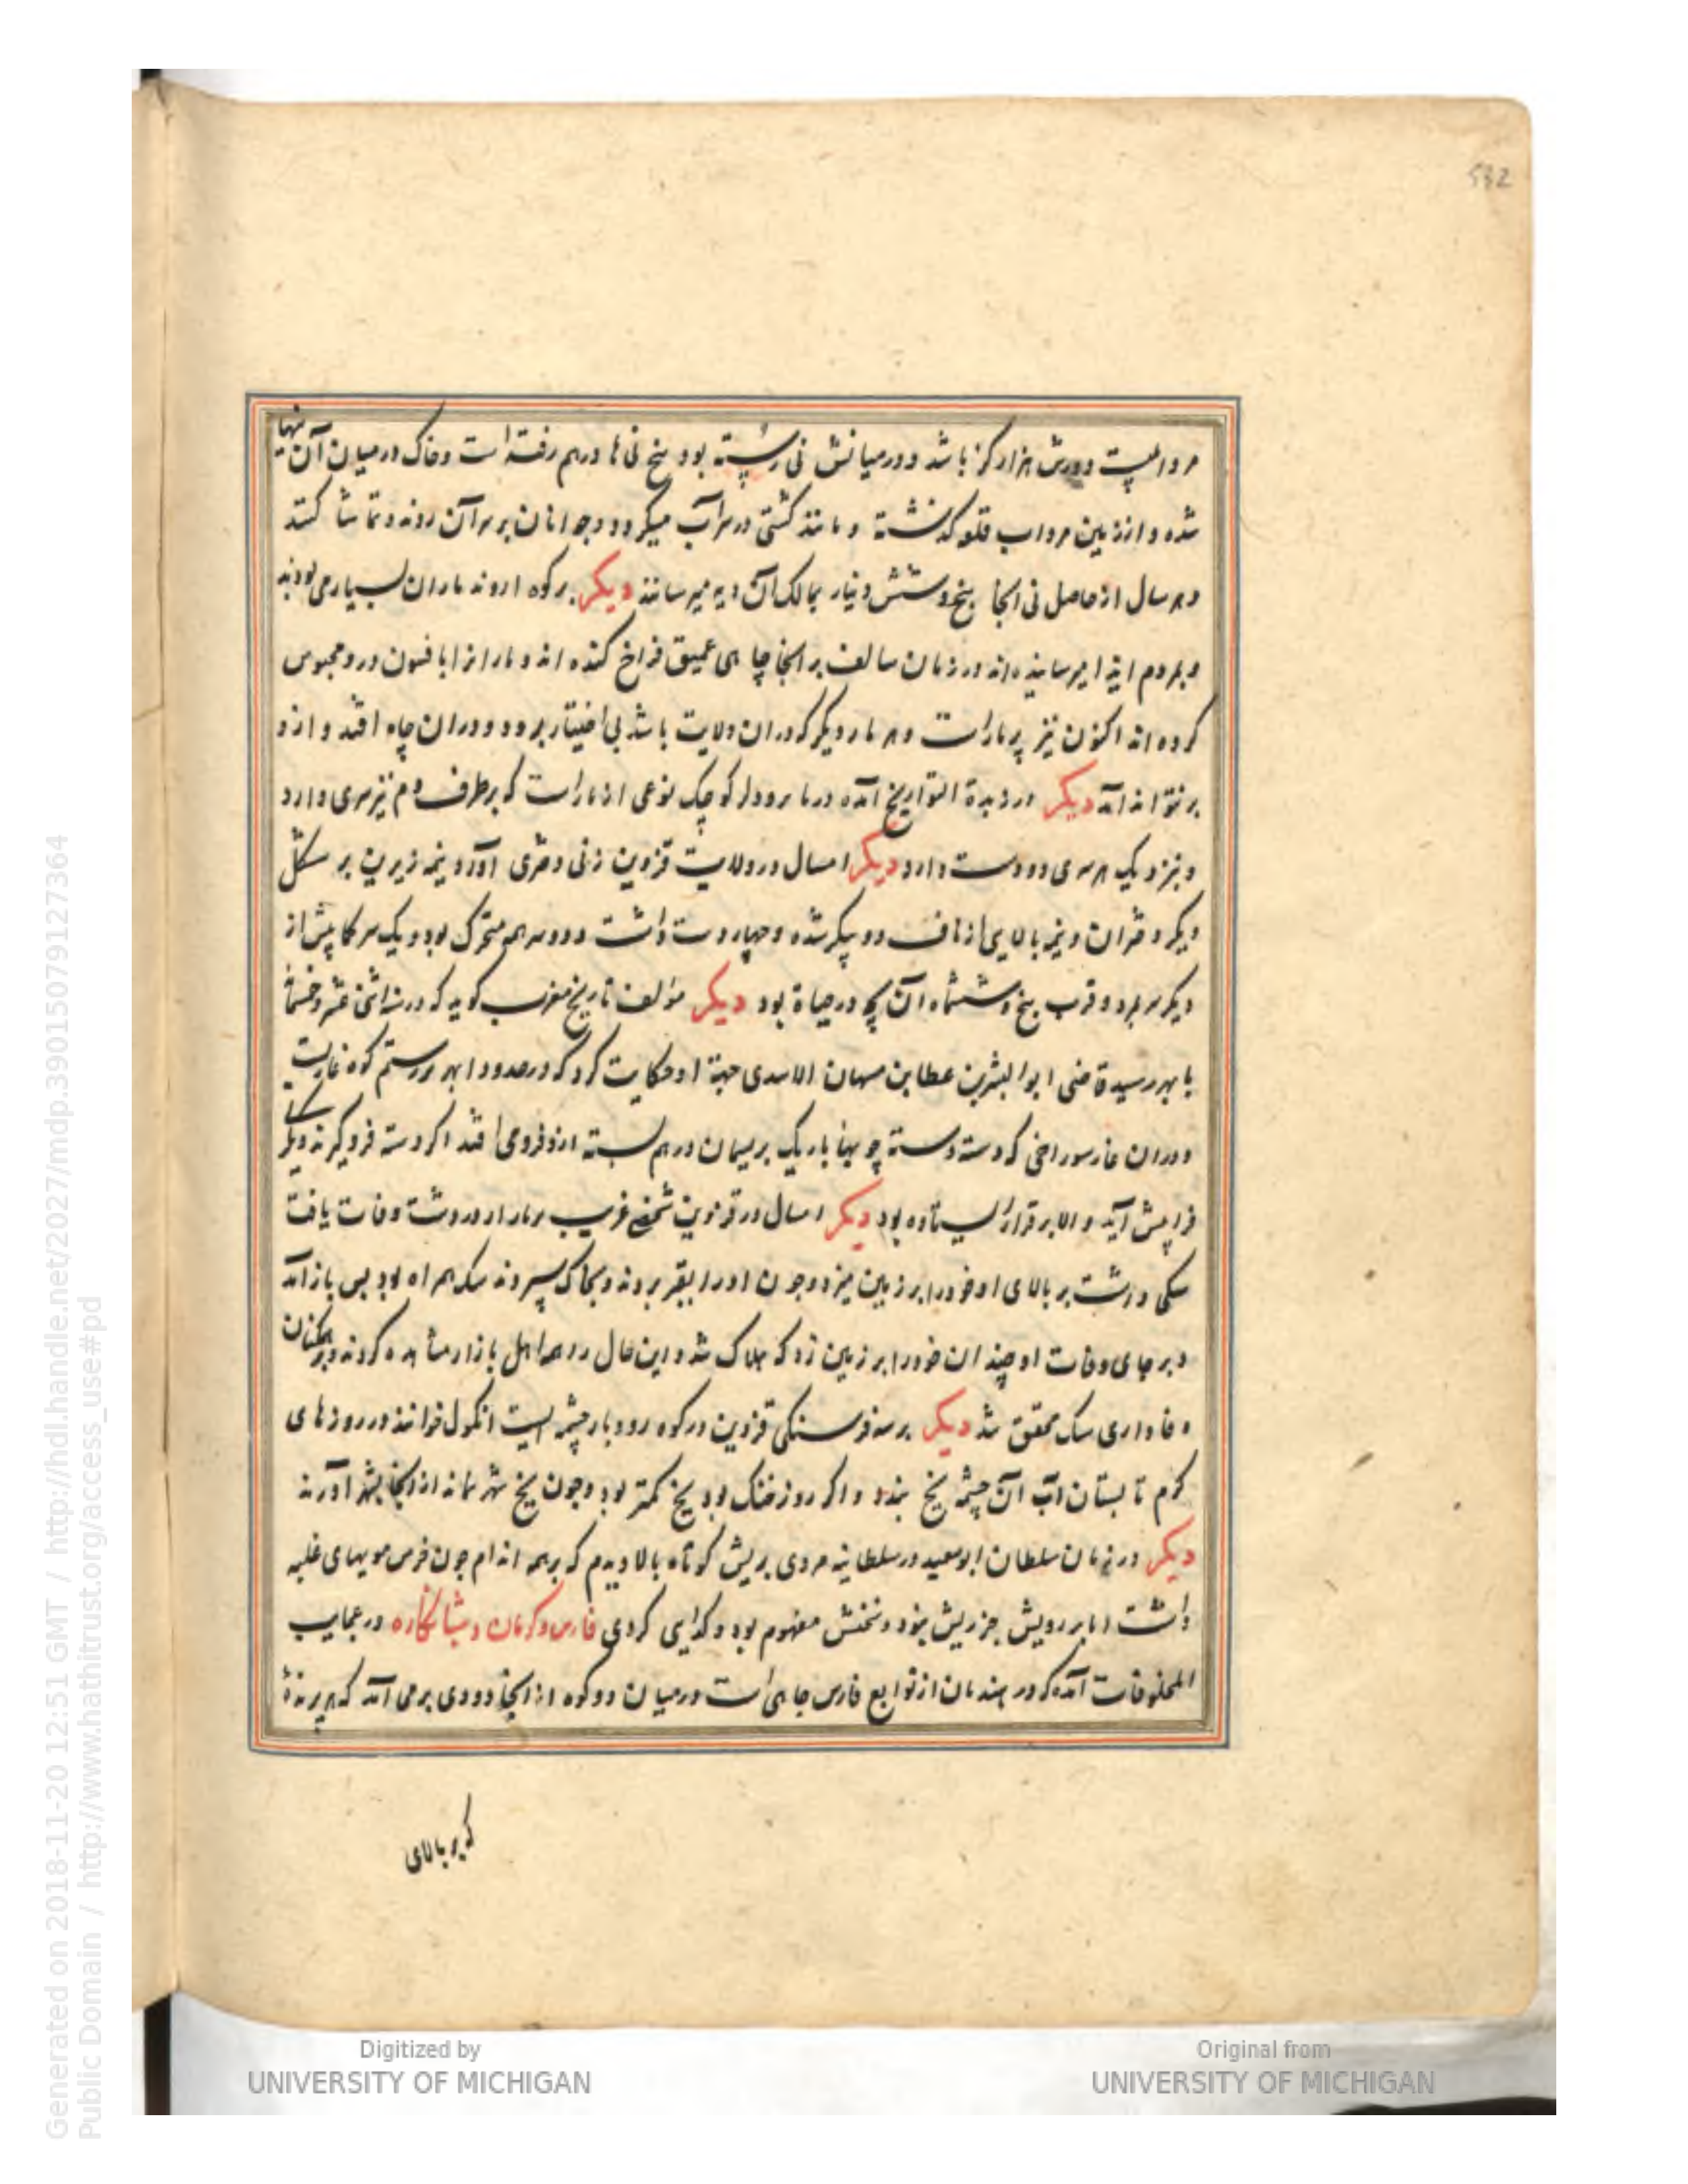 532
مردابیست دورش هزار کز باشد و درمیانش نی رسته بود بیخ نی ها درهم رفته است و خاک درمیان آن تنها
شده و از زمین مرداب قلو کذشته و مانند کشتی در سر آب میکردد و جوانان بر سر آن روند و تماشا کنند
و هر سال از حاصل نی آنجا پنج و شش دینار بمالک آن دیه میرسانند دیکر بر کوه اروند ماران بسیار می بودند
و بمردم ایذا میرسانیده اند در زمان سالف بر آنجا چاهی عمیق فراخ کنده اند و مارانرا بافسون درو محبوس
کرده اند اکنون نیز پر مارست و هر مار دیکر که در ان ولایت باشد بی اختیار برود و در ان چاه افتد و ازو
بر نتواند آمد دیکر در زبدة التواریخ آمده در مامرودلر کوچک نوعی از مارست که بر طرف دم نیز سری دارد
و بنزدیک هر سری دو دست دارد دیکر امسال در ولایت قزوین زنی دختری آورد نیمه زیرین بر شکل
دیکر دختران و نیمه بالایی از ناف دو پیکر شده و چهار دست داشت و دو سر هم متحرک بود و یک سر کا پیش از
دیکر سر بمرد و قرب پنج و ششماه آن بچه در حیاة بود دیکر مؤلف تاریخ مغرب کوید که در سنه اثنی عشر و خمسمائة
بابهر رسید قاضی ابوالبشر بن عطا بن مهان الاسدی جهة او حکایت کرد که در حدود ابهر برستم کوه غاریست
و در ان غار سوراخی که دسته دسته چوبها باریک بریسمان درهم بسته ازو فرو می افتد اکر دسته فرو کیرند دیکر
فرا پیش آید و الا برقرار ایستاده بود دیکر امسال در قزوین شخصی غریب بر بازار درودشت وفات یافت
سکی داشت بر بالای او خود را بر زمین میزد و چون او را بقبر بردند و بخاک سپردند سک همراه بود پس باز آمد
و بر جای وفات او چندان خود را بر زمین زد که هلاک شد و این حال را همه اهل بازار مشاهده کردند و بر همکنان
وفاداری سک محقق شد دیکر بر سه فرسنکی قزوین در کوه رودبار چشمه ایست انکول خوانند در روزهای
کرم تابستان آب آن چشمه یخ بندد و اکر روز خنک بود یخ کمتر بود و چون یخ شهر نماند از آنجا بشهر آورند
دیکر در زمان سلطان ابوسعید در سلطانیه مردی بریش کوتاه بالا دیدم که بر همه اندام چون خرس مویهای غلبه
داشت اما بر رویش جز ریش نبود و سخنش مفهوم بود و کدایی کردی فارس و کرمان و شبانکاره در عجایب
المخلوقات آمده که در هندمان از توابع فارس چاهی است در میان دو کوه از آنجا دودی بر می آمد که هر پرنده
که بر بالای
Digitized by
UNIVERSITY OF MICHIGAN
Original from
UNIVERSITY OF MICHIGAN
Generated on 2018-11-20 12:51 GMT / http://hdl.handle.net/2027/mdp.39015079127364
Public Domain / http://www.hathitrust.org/access_use#pd